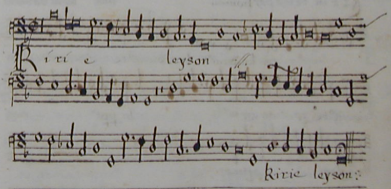 Kirie leyson
kirie leyson